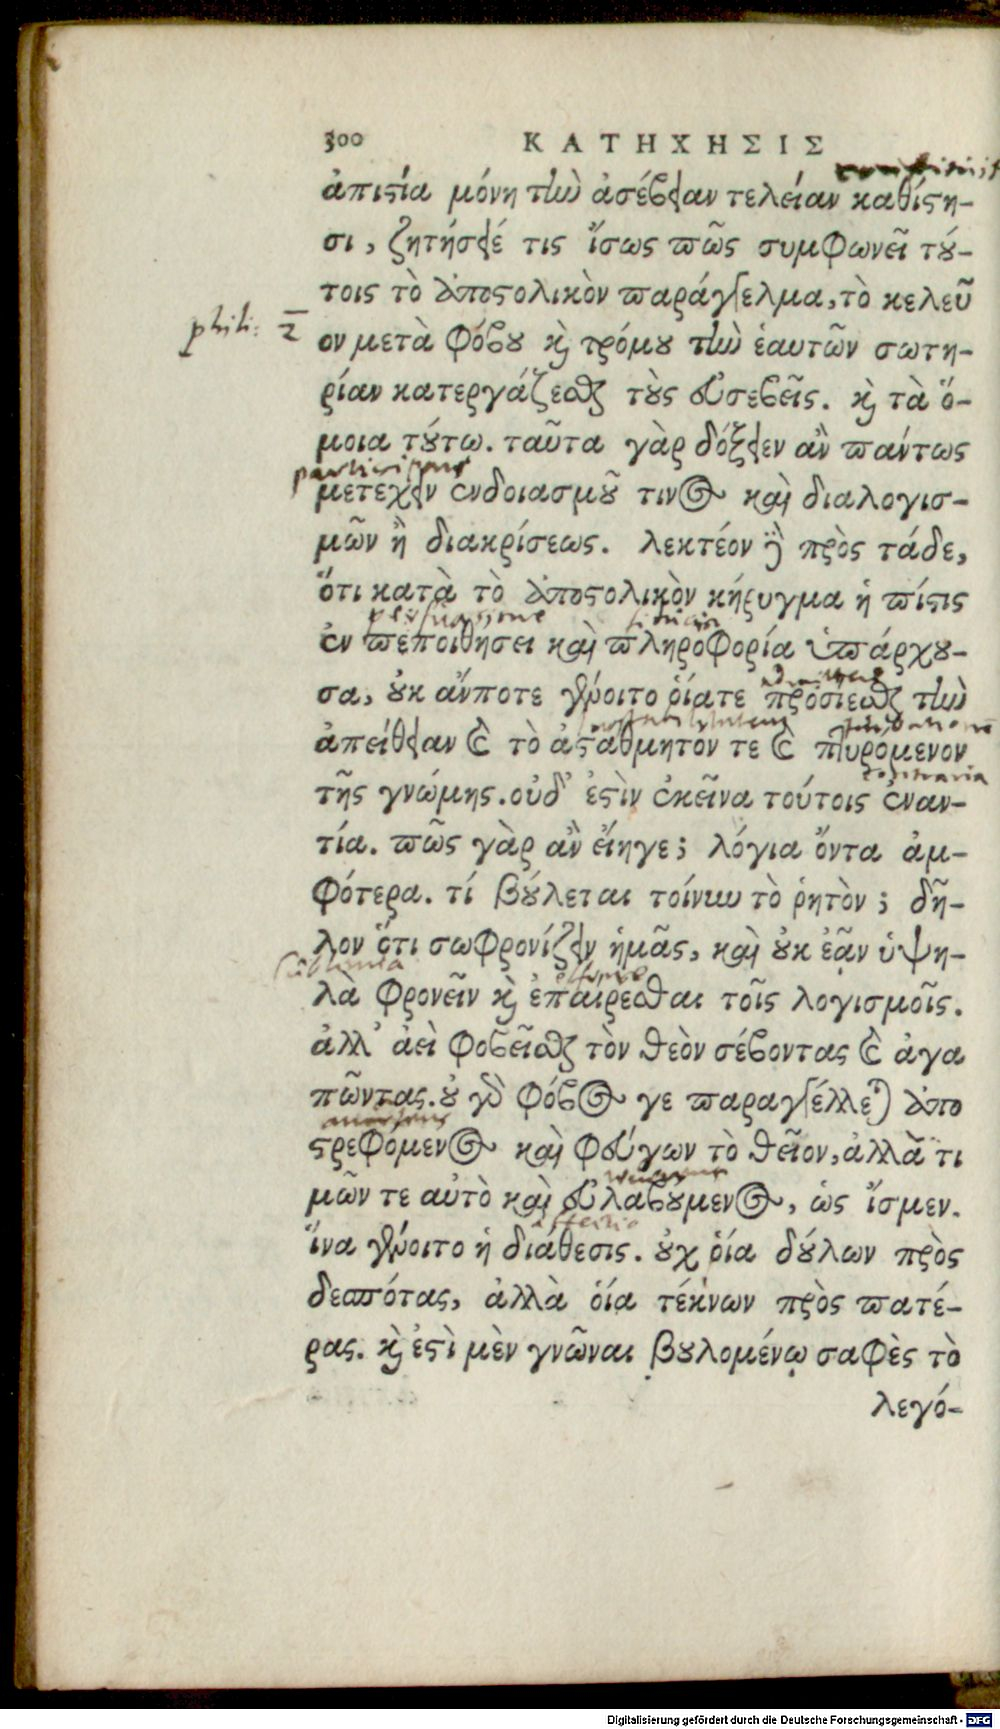 300 ΚΑΤΗΧΗΣΙΣ
ἀπιστία μόνη τὴν ἀσέβειαν τελείαν καθίστη-
σι, ζητήσειέ τις ἴσως πῶς συμφωνεῖ τού-
τοις τὸ ἀποστολικὸν παράγγελμα, τὸ κελεῦ
phili: 2
ον μετὰ φόβου καὶ τρόμου τὴν ἑαυτῶν σωτη-
ρίαν κατεργάζεσθαι τοὺς εὐσεβεῖς. καὶ τὰ ὅ-
μοια τούτω. ταῦτα γὰρ δόξειεν ἂν πάντως
μετέχειν ἐνδοιασμοῦ τινος καὶ διαλογισ-
μῶν ἢ διακρίσεως. λεκτέον δὲ πρὸς τάδε,
ὅτι κατὰ τὸ ἀποστολικὸν κήρυγμα ἡ πίστις
persuasione
ἐν πεποιθήσει καὶ πληροφορία ὑπάρχου-
σα, οὐκ ἄνποτε γένοιτο οἵατε πρόσιεσθαι τὴν
ἀπείθειαν καὶ τὸ ἀστάθμητόν τε καὶ πτυρόμενον
contraria
τῆς γνώμης. οὐδ’ ἐστὶν ἐκεῖνα τούτοις ἐναν-
τία. πῶς γὰρ ἂν εἴηγε; λόγια ὄντα ἀμ-
φότερα. τί βούλεται τοίνυν τὸ ῥητὸν; δῆ-
λον ὅτι σωφρονίζειν ἡμᾶς, καὶ οὐκ ἐᾷν ὑψη-
sublimia
λὰ φρονεῖν καὶ ἐπαίρεσθαι τοῖς λογισμοῖς.
ἀλλ’ ἀεὶ φοβεῖσθαι τὸν θεὸν σέβοντας καὶ ἀγα
πῶντας. οὐ γὰρ φόβος γε παραγγέλλεται ἀπο
στρεφόμενος καὶ φεύγων τὸ θεῖον, ἀλλὰ τι
μῶν τε αὐτὸ καὶ εὐλαβούμενος, ὡς ἴσμεν.
affectio
ἵνα γένοιτο ἡ διάθεσις. οὐχ οἵα δούλων πρὸς
δεσπότας, ἀλλὰ οἵα τέκνων πρὸς πατέ-
ρας. καὶ ἐστὶ μὲν γνῶναι βουλομένῳ σαφὲς τὸ
λεγό-
Digitalisierung gefördert durch die Deutsche Forschungsgemeinschaft - DFG